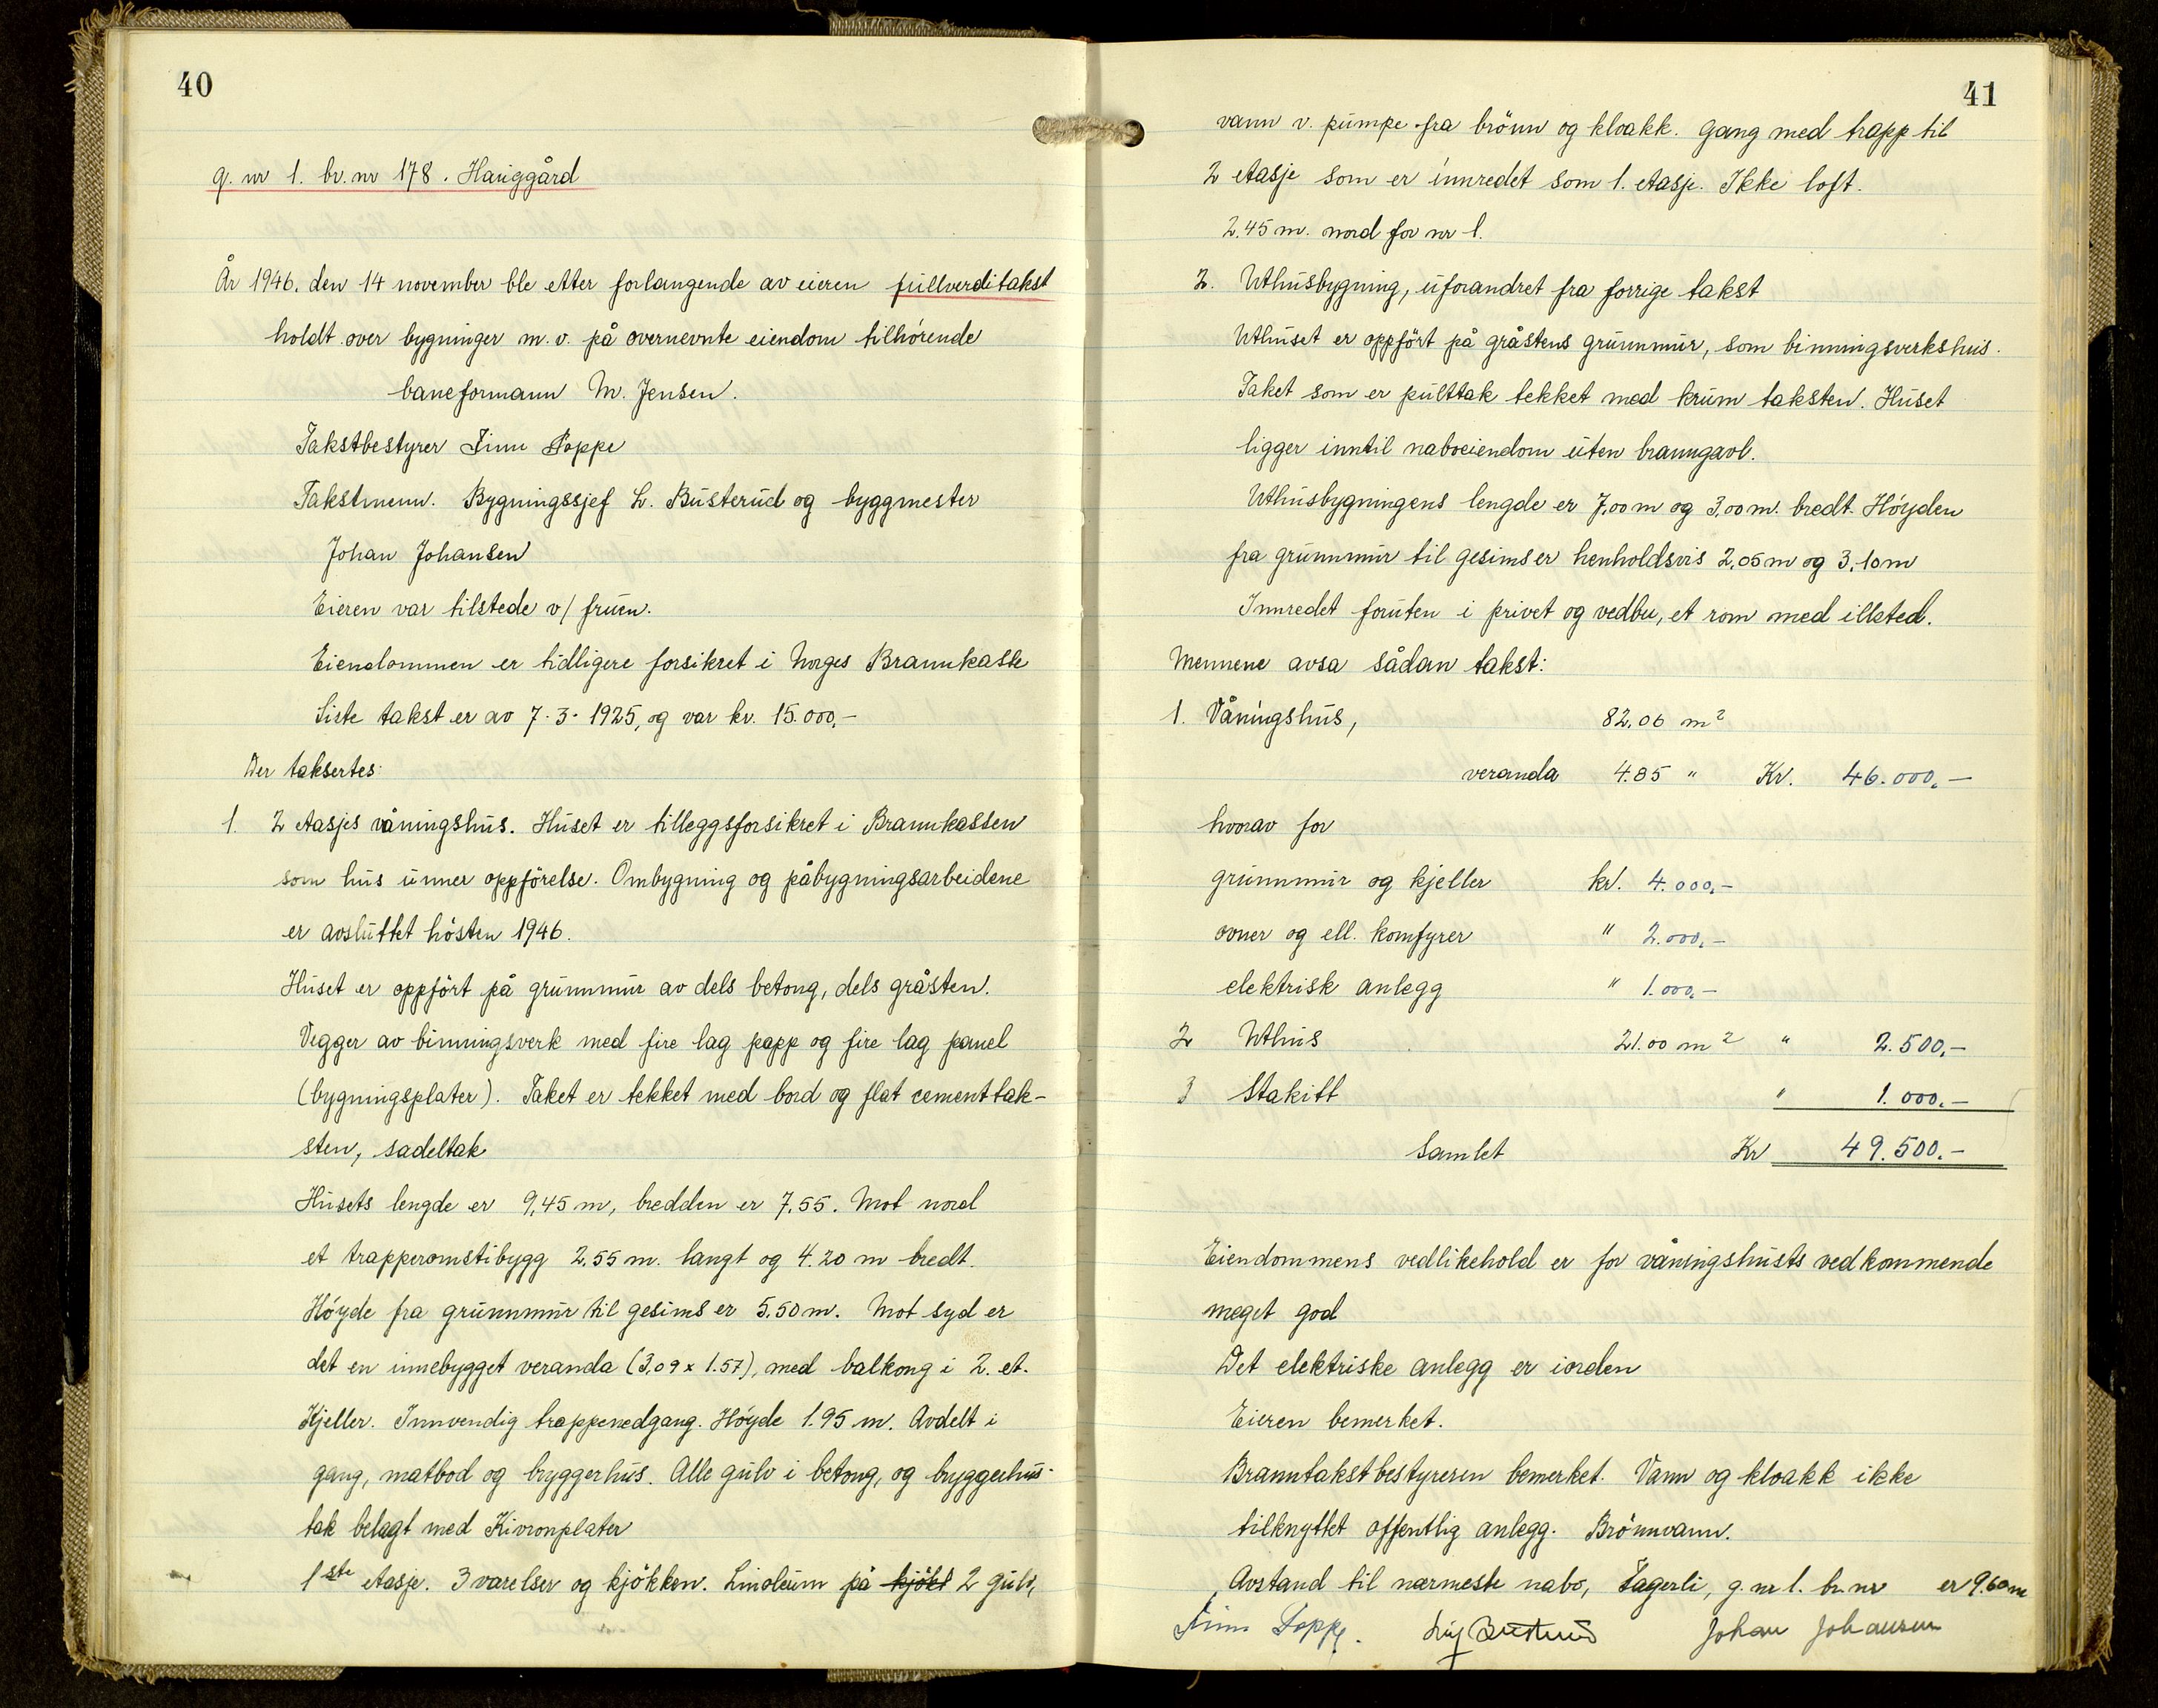 40
g. nr 1. br. nr 178. Hauggård
År 1946. den 14 november ble etter forlangende av eieren fullverditakst
holdt over bygninger m.v. på overnevnte eiendom tilhörende
baneformann M. Jensen.
Takstbestyrer Finn Poppe
Takstmenn. Bygningssjef L. Busterud og byggmester
Johan Johansen
Eieren var tilstede v/ fruen.
Eiendommen er tidligere forsikret i Norges Brannkasse
Siste takst er av 7-3-1925, og var kr. 15.000,-
Der taksertes:
1. 2 etasjes våningshus. Huset er tilleggsforsikret i Brannkassen
som hus unner oppförelse. Ombygning og påbygningsarbeidene
er avsluttet hösten 1946.
Huset er oppfört på grunnmur av dels betong, dels gråsten.
Vegger av binningsverk med fire lag papp og fire lag panel
(bygningsplater). Taket er tekket med bord og flat cementtak-
sten, sadeltak
Husets lengde er 9,45 m, bredden er 7.55. Mot nord
et trapperomstibygg 2.55 m. langt og 4.20 m bredt.
Höyde fra grunnmur til gesims er 5.50 m. Mot syd er
det en innebygget veranda (3,09 x 1.57), med balkong i 2. et.
Kjeller. Innvendig trappenedgang. Höyde 1.95 m. Avdelt i
gang, matbod og bryggerhus. Alle gulv i betong, og bryggerhus-
tak belagt med Kivronplater
1ste etasje. 3 varelser og kjökken. Linoleum på kjökk 2 gulv,
41
vann v. pumpe fra brönn og kloakk. Gang med trapp til
2 etasje som er innredet som 1. etasje. Ikke loft.
2.45 m. nord for nr 1.
2. Uthusbygning, uforandret fra forrige takst
Uthuset er oppfört på gråstens grunnmur, som binningsverkshus.
Taket som er pulttak tekket med krum taksten. Huset
ligger inntil naboeiendom uten branngavl.
Uthusbygningens lengde er 7,00 m og 3,00 m. bredt. Höyden
fra grunnmur til gesimser henholdsvis 2,05 m og 3,10 m
Innredet foruten i privet og vedbu, et rom med illsted.
Mennene avsa sådan takst:
1. Våningshus, 82,06 m2
veranda 4.85 " Kr. 46.000,-
hvorav for
grunnmur og kjeller kr. 4.000,-
ovner og ell. komfyrer " 2.000,-
elektrisk anlegg " 1.000,-
2 Uthus 21.00 m2 " 2.500,-
3 Stakitt " 1.000,-
Samlet Kr 49.500.-
Eiendommens vedlikehold er for våningshusts vedkommende
meget god
Det elektriske anlegg er iorden
Eieren bemerket.
Branntakstbestyreren bemerket. Vann og kloakk ikke
tilknyttet offentlig anlegg. Brönnvann.
Avstand til nærmeste nabo, Fagerli, g. nr 1. br. nr er 9.60 m
Finn Poppe. Busterud Johan Johansen